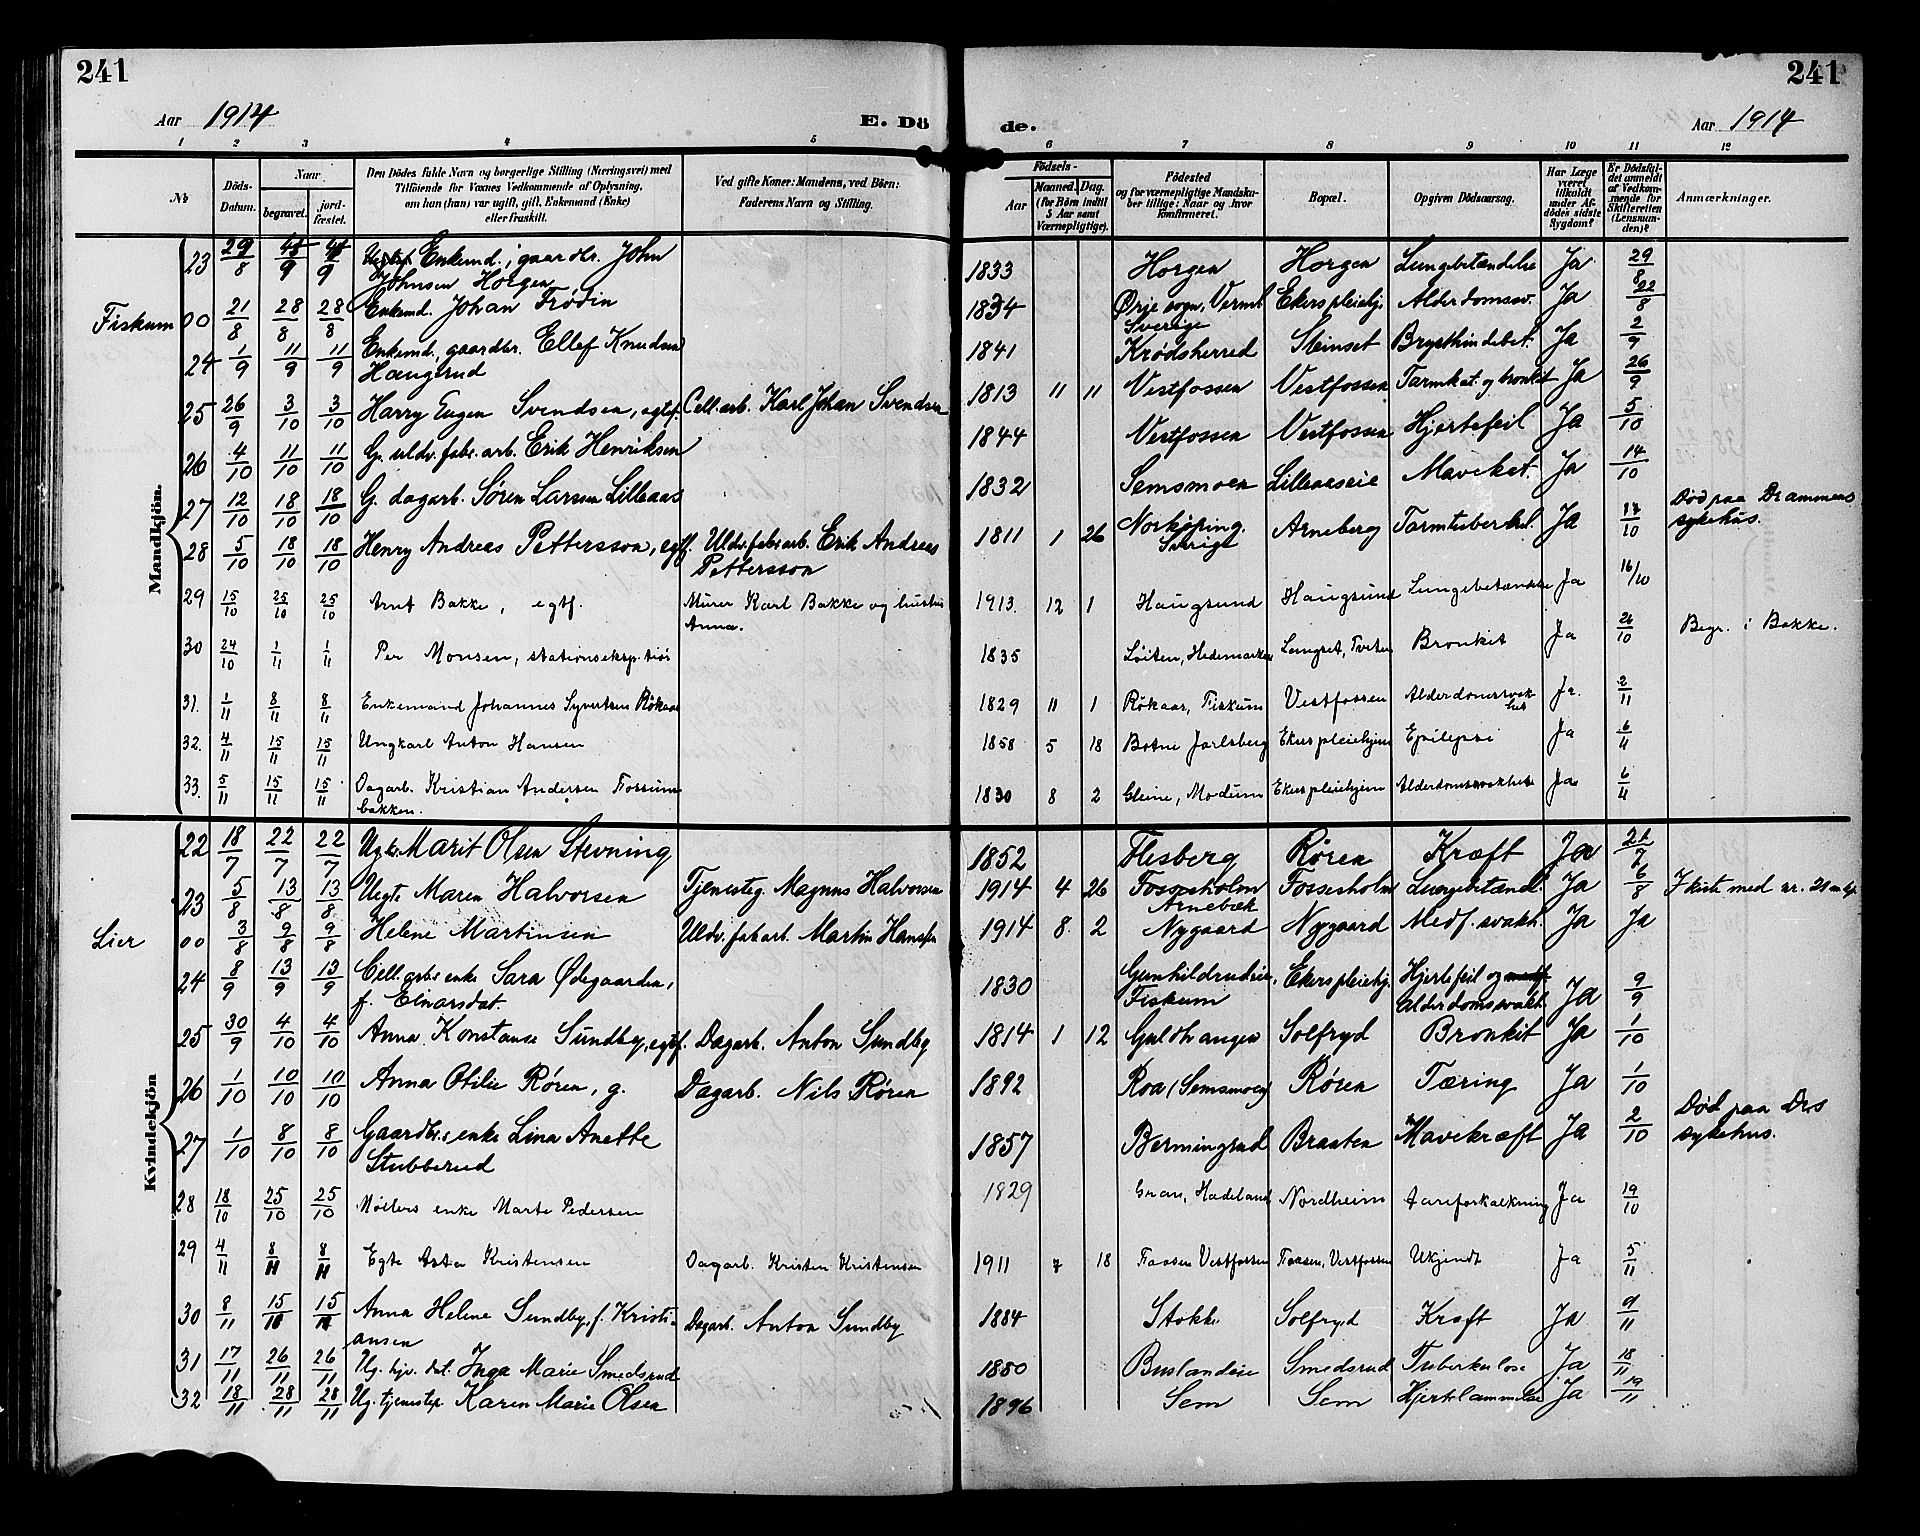 241
241
Aar 1914
E. Dö
de.
Aar 1914
1 2 3 4 5 6 7 8 9 10 11 12
No
Döds-Datum.
Naar
begravet.
jord-fæstet.
Den Dödes fulde Navn og borgerlige Stilling (Næringsvei) med
Tilföiende for Voxnes Vedkommende af Oplysning,
om han (hun) var ugift, gift, Enkemand (Enke)
eller fraskilt.
Ved gifte Koner: Mandens, ved Börn:
Faderens Navn og Stilling.
Födsels-
Aar
Maaned. Dag.
(for Börn indtil
5 Aar samt
Værnepligtige).
Födested
og for værnepligtige Mandska-
ber tillige: Naar og hvor
konfirmeret.
Bopæl.
Opgiven Dödsaarsag.
Har Læge
været
tilkaldt
under Af-
dödes sidste
Sygdom?
Er Dödsfal-
det anmeldt
af Vedkom-
mende for
Skifteretten
(Lensman-
den)?
Anmærkninger.
Mandkjön.
23 29/8 /9 /9 Enkemd. gaardbr. John Johnsen Horgen 1833 Horgen Horgen Lungebetændelse Ja 29/8
Fiskum 00 21/8 28/8 28/8 Enkemd. Johan Frødin 1834 Ørje sogn, Verml. Sverige Ekers pleiehj. Alderdomssv. Ja 22/8
24 1/9 11/9 11/9 Enkemd., gaardbr. Ellef Knudsen Haugsrud 1841 Krødsherred Steinset Brysthindebet. Ja 2/9
25 26/9 3/10 3/10 Harry Eugen Svendsen, egtef. Cell. arb. Karl Johan Svendsen 1813 11 11 Vestfossen Vestfossen Tarmkat. og bronkit Ja 26/9
26 4/10 11/10 11/10 G. uldv. fabr. arb. Erik Henriksen 1844 Vestfossen Vestfossen Hjertefeil Ja 5/10
27 12/10 18/10 18/10 G. dagarb. Søren Larsen Lilleaas 1832 Semsmoen Lilleaaseie Mavekat. Ja 14/10
28 5/10 18/10 18/10 Henry Andreas Pettersson, egtf. Uldv. fabr. arb. Erik Andreas Pettersson 1811 1 26 Norkøping. Sverige Arneberg Tarmtuberkul. Ja 17/10 Død paa Drammens sykehus.
29 15/10 25/10 25/10 Arnt Bakke, egtf. Murer Karl Bakke og hustru Anna. 1913. 12 1 Haugsund Haugsund Lungebetændelse Ja 16/10
30 24/10 1/11 1/11 Per Monsen, stationseksp. 1835 Løiten, Hedemarken Langset, Tveten Bronkit Ja 26/10 Begr. i Bakke.
31. 1/11 8/11 8/11 Enkemand Johannes Syvertsen Røkaas 1829 11 1 Røkaas, Fiskum Vestfossen Alderdomssvakhet Ja. 2/11
32. 4/11 15/11 15/11 Ungkarl Anton Hansen 1858 5 18 Botne Jarlsberg Ekers pleiehjem Epilepsi Ja 6/11
33. 5/11 15/11 15/11 Dagarb. Kristian Andersen Fossumbakken. 1830 8 2 Gleine, Modum Ekers pleiehjem Alderdomssvakhet Ja 6/11
Kvindekjön
22 18/7 22/7 22/7 Marit Olsen Stevning 1852 Flesberg Røren Kræft Ja 21/7
23 5/8 13/8 13/8 Uegte Maren Halvorsen Tjenesteg. Magnus Halvorsen 1914 4 26 Fossesholm Fossesholm Lungebetændl. Ja 6/8 I kiste med nr. 21 m.kj.
Lier 00 3/8 9/8 9/8 Helene Martinsen Uldv. fab. arb. Martin Hansen 1914 8. 2 Arnebæk Nygaard Nygaard Medf. svakh. Ja Ja
24 8/9 13/9 13/9 Cell. arbs. enke Sara Ødegaarden, f. Einarsdat. 1830 Gunhildrudeie, Fiskum Ekers pleiehj. Hjertefeil og Alderdomssvakh. Ja 9/9
25 30/9 4/10 4/10 Anna Konstanse Sundby, egtf. Dagarb. Anton Sundby 1814 1 12 Guldhaugen Solfryd Bronkit Ja 1/10
26 1/10 10/10 10/10 Anna Otilie Røren, g. Dagarb. Nils Røren 1892 Roa (Semsmoen) Røren Tæring Ja 1/10
27 1/10 8/10 8/10 Gaardbr.s enke Lina Anette Stubberud 1857 Bermingrud Braaten Mavekræft Ja 2/10 Død paa Drs sykehus.
28 18/10 25/10 25/10 Møllers enke Marte Pedersen 1829 Gran, Hadeland Nordheim Aareforkalkning Ja 19/10
29 4/11 8/11 8/11 Egte Asta Kristensen Dagarb. Kristen Kristensen 1911 7 18 Faasen Vestfossen Faasen, Vestfossen Ukjendt Ja 5/11
30 8/11 15/11 15/11 Anna Helene Sundby, f. Kristiansen Dagarb. Anton Sundby 1884 Stokke Solfryd Kræft Ja 9/11
31 17/11 26/11 26/11 Ug. hjv. dat. Inga Marie Smedsrud 1880 Buslandeie Smedsrud Tuberkulose Ja 18/11
32 18/11 28/11 28/11 Ug. tjenestep. Karen Marie Olsen 1896 Sem Sem Hjertelammelse Ja 19/11